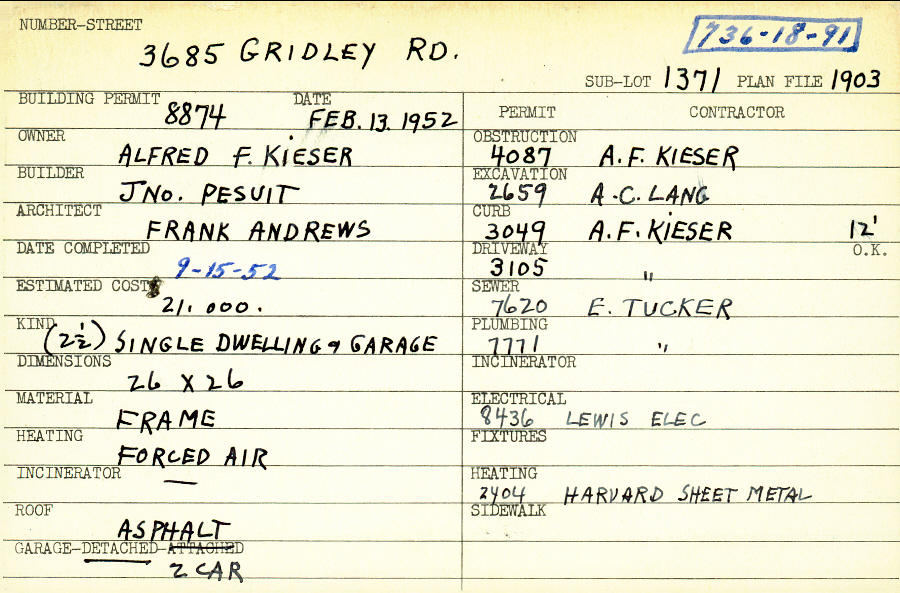 NUMBER-STREET
3685 GRIDLEY RD.
736-18-91
SUB-LOT 1371 PLAN FILE 1903
BUILDING PERMIT 8874 DATE FEB. 13. 1952
OWNER
ALFRED F. KIESER
BUILDER
JNO. PESUIT
ARCHITECT
FRANK ANDREWS
DATE COMPLETED
9-15-52
ESTIMATED COST
21,000.
KIND
(2½) SINGLE DWELLING & GARAGE
DIMENSIONS
26 X 26
MATERIAL
FRAME
HEATING
FORCED AIR
INCINERATOR
—
ROOF
ASPHALT
GARAGE-DETACHED-ATTACHED
2 CAR
PERMIT CONTRACTOR
OBSTRUCTION
4087 A.F. KIESER
EXCAVATION
2659 A.C. LANG
CURB
3049 A.F. KIESER 12'
DRIVEWAY O.K.
3105 "
SEWER
7620 E. TUCKER
PLUMBING
7771 "
INCINERATOR
ELECTRICAL
8436 LEWIS ELEC
FIXTURES
HEATING
2404 HARVARD SHEET METAL
SIDEWALK